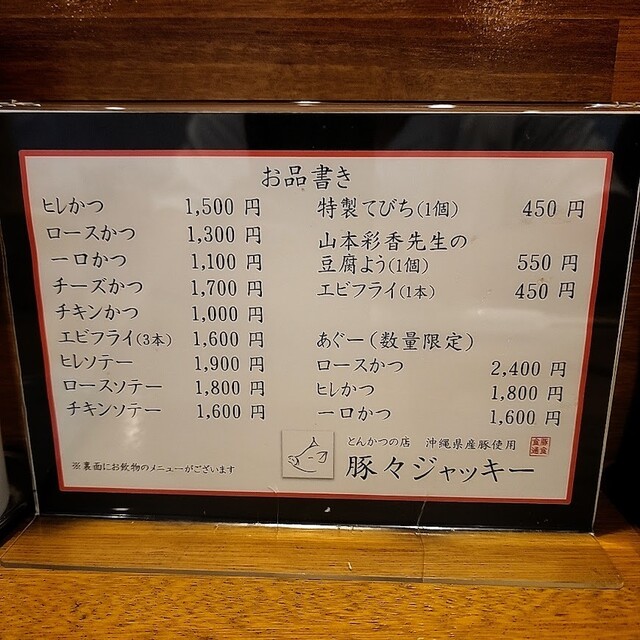 お品書き
ヒレかつ 1,500 円
ロースかつ 1,300 円
一口かつ 1,100 円
チーズかつ 1,700 円
チキンかつ 1,000 円
エビフライ(3本) 1,600 円
ヒレソテー 1,900 円
ロースソテー 1,800 円
チキンソテー 1,600 円
※裏面にお飲物のメニューがございます
特製てびち(1個) 450 円
山本彩香先生の
豆腐よう(1個) 550 円
エビフライ(1本) 450 円
あぐー(数量限定)
ロースかつ 2,400 円
ヒレかつ 1,800 円
一口かつ 1,600 円
とんかつの店 沖縄県産豚使用
豚々ジャッキー